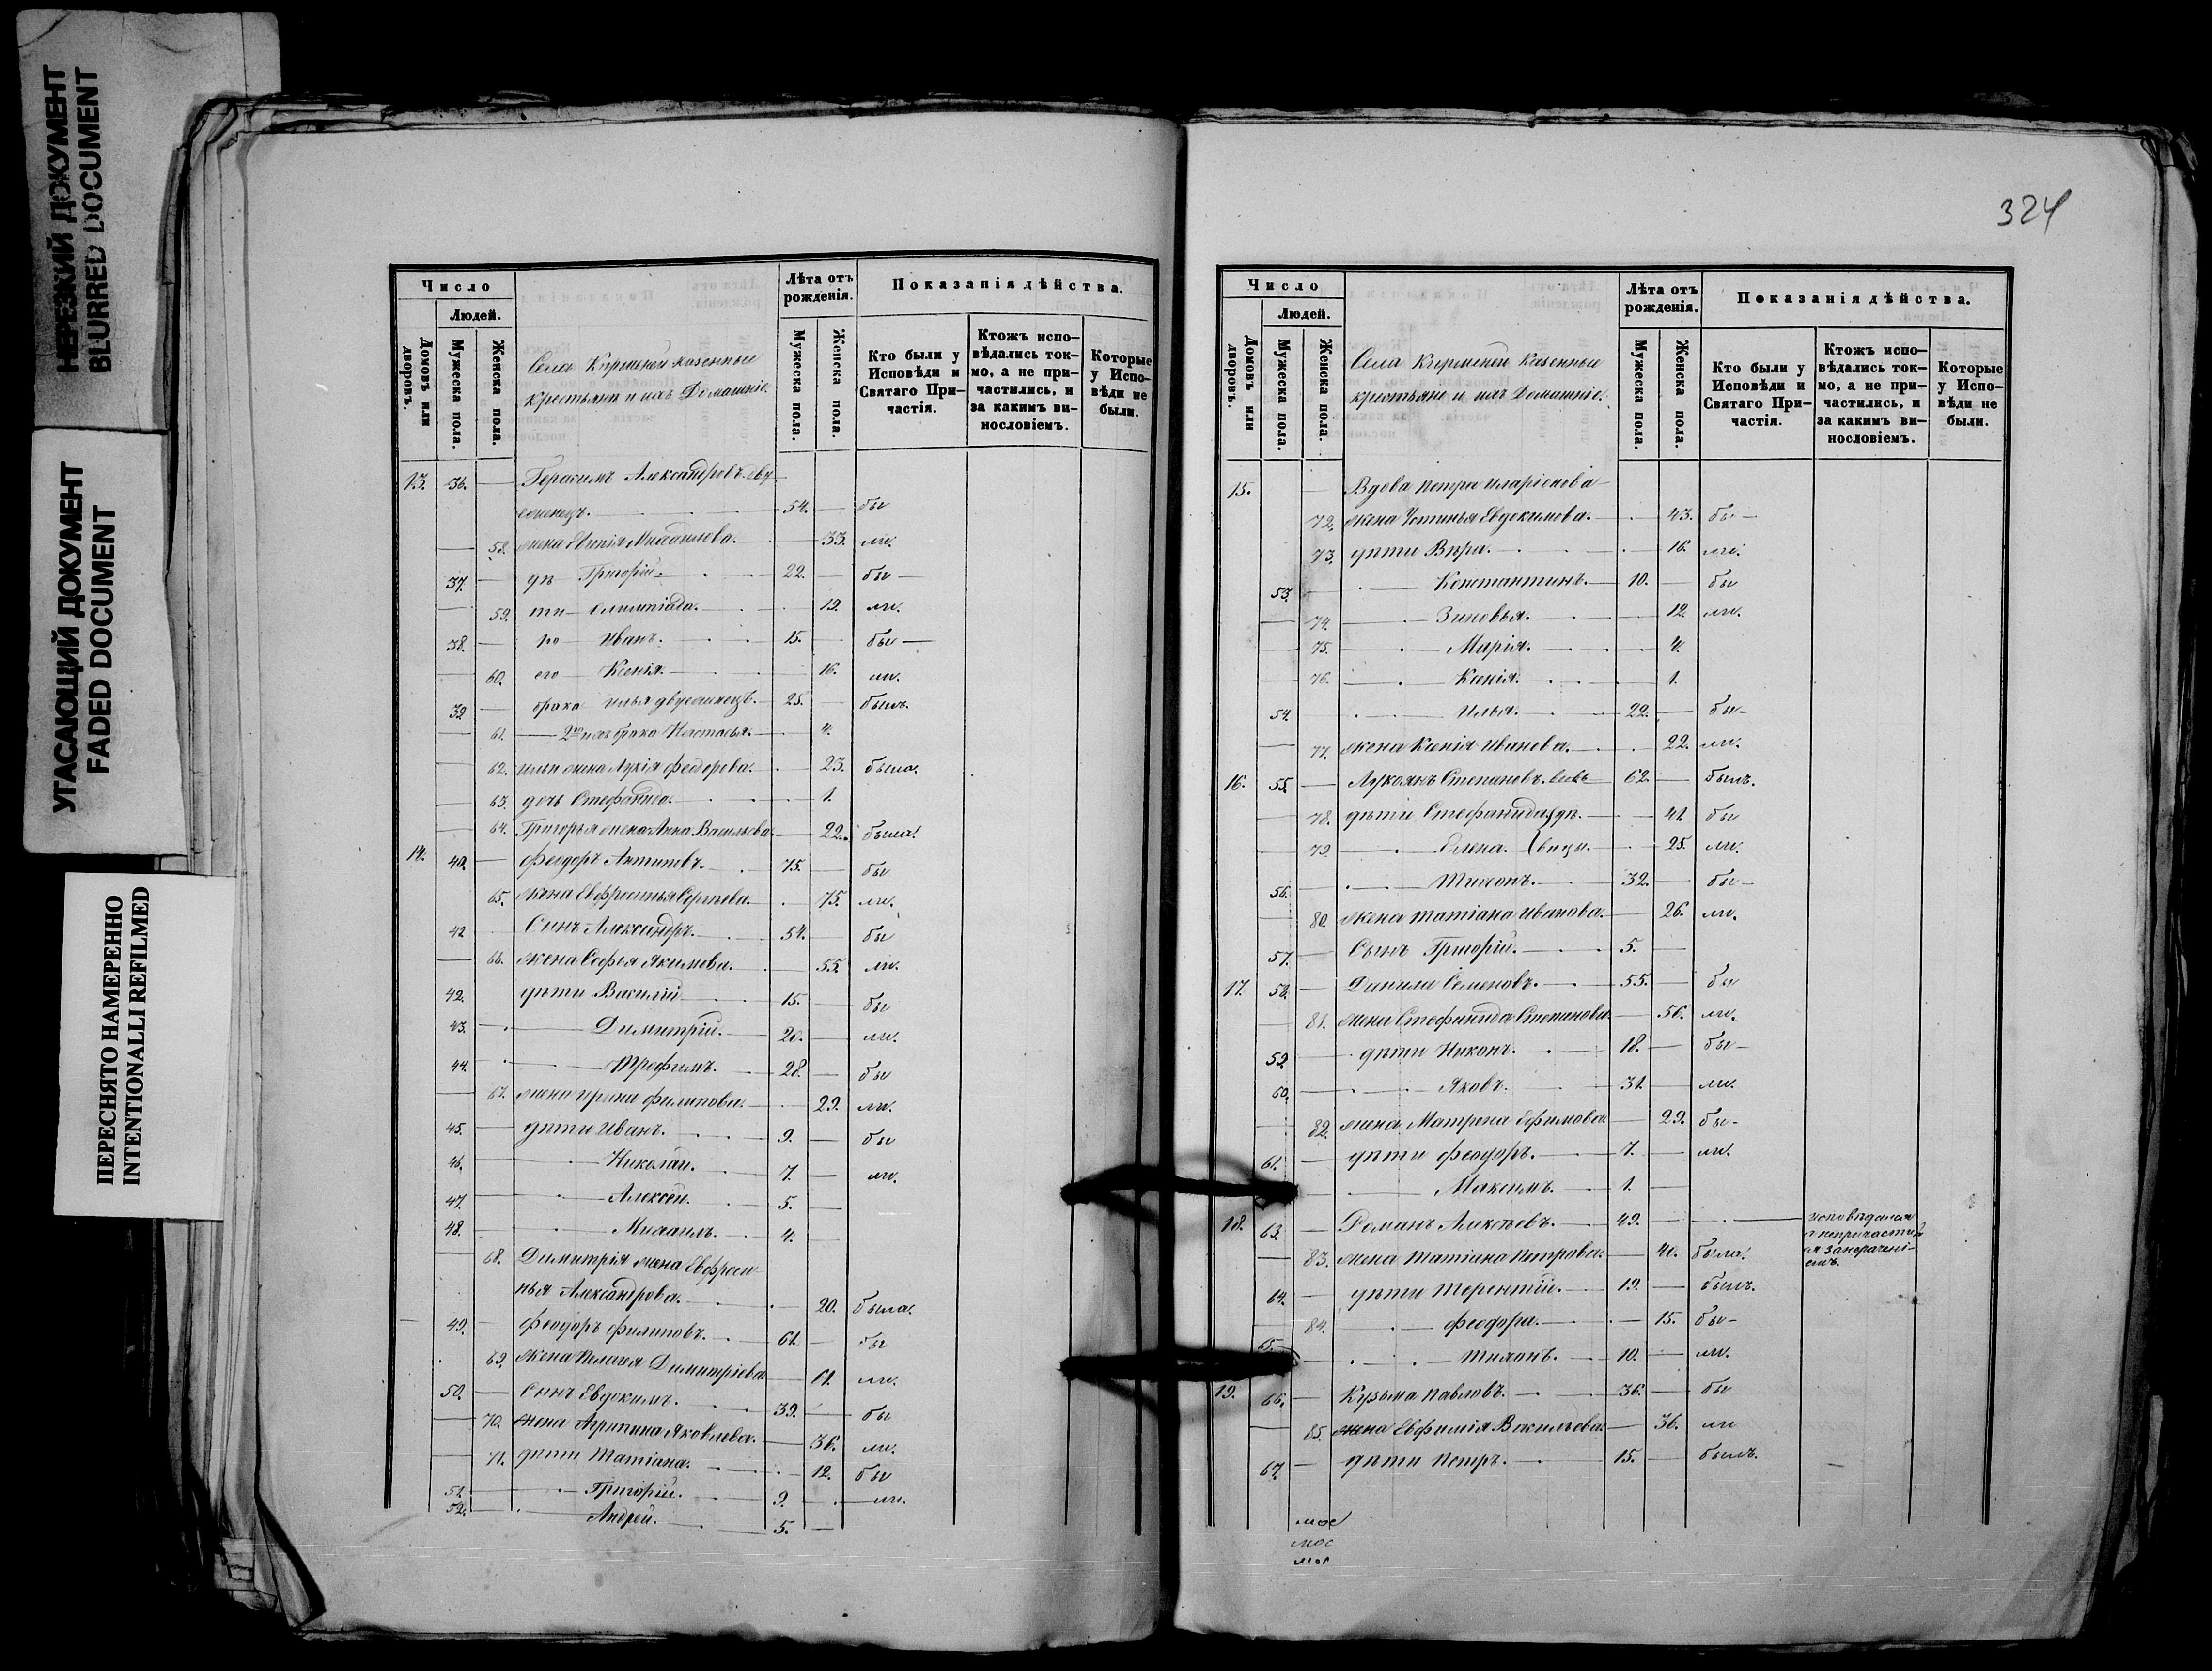 НЕРЕЗКИЙ ДОКУМЕНТ
BLURRED DOCUMENT
УГАСАЮЩИЙ ДОКУМЕНТ
FADED DOCUMENT
ПЕРЕСНЯТО НАМЕРЕННО
INTENTIONALLI REFILMED
Число
Людей.
Домовъ или дворовъ.
Мужеска пола.
Женска пола.
Села казенные
крестьяне и ихъ Домашніе.
Лѣта отъ рожденія.
Мужеска пола.
Женска пола.
Показанія дѣйства.
Кто были у Исповѣди и Святаго Причастія.
Ктожъ исповѣдались токмо, а не причастились, и за какимъ винословіемъ.
Которые у Исповѣди не были.
13. 36. — Герасимъ Александровъ
54. — бы
58. жена Михайлова. 33. ли.
37. — дѣ Григорій. 22. — бы —
59. ти Олимпіада. 19. ли.
38. — Иванъ. 15. — бы —
60. его Ксенія. 16. ли.
39 — брака Илья 25. — былъ.
61. 2го ихъ брака Настасья. 4.
62. Ильи жена Лукія Феодорова. 23. была.
63. дочь Стефанида. 1.
64. Григорья жена Анна Васильева. 22. была.
14. 40. — Феодоръ Антиповъ. 75. бы
65. жена Евфросинья Сергѣева. 75. ли.
41 Сынъ Александръ. 54. бы
66. жена Софья Якимова. 55. ли.
42. дѣти Василій 15. — бы
43. Димитрій. 20. — ли.
44. Трофимъ. 28. — бы
67. жена Ирина Филипова. 29. ли.
45. дѣти Иванъ. 9. — бы
46. Николай. 7. — ли.
47. Алексѣй. 5. —
48. Михаилъ. 4. —
68. Димитрія жена Евфроси
нья Александрова. 20. была.
49. — Феодоръ Филиповъ. 61. — бы
69. жена Пелагея Димитріева 61. ли.
50. — Сынъ Евдокимъ. 39. — бы
70. жена Агрипина Яковлева. 36. ли.
71. дѣти Татіана. 12. бы
51. Григорій. 9. — ли.
52. Андрей. 5. —
324
Число
Людей.
Домовъ или дворовъ.
Мужеска пола.
Женска пола.
Села казенные
крестьяне и ихъ Домашніе.
Лѣта отъ рожденія.
Мужеска пола.
Женска пола.
Показанія дѣйства.
Кто были у Исповѣди и Святаго Причастія.
Ктожъ исповѣдались токмо, а не причастились, и за какимъ винословіемъ.
Которые у Исповѣди не были.
15. — Вдова Петра Иларіонова
72. жена Устинья Евдокимова. 43. бы —
73. дѣти Вѣра. 16. ли.
53. Константинъ. 10. — бы
74. Зиновья. 12. ли.
75. Марія. 4.
76. Ксенія. 1.
54. Илья. 22. — бы-
77. жена Ксенія Иванова. 22. ли.
16. 55. — Лукоянъ Степановъ. 62. — былъ.
78. дѣти Стефанида дѣ 41 бы
79. Елена. вицы. 25. ли.
56. Тихонъ. 32. — бы-
80. жена Татіана Иванова. 26. ли.
57. — Сынъ Григорій. 5. —
17. 58. — Данила Семеновъ. 55. — бы
81. жена Стефанида Степанова 56. ли.
59 дѣти Никонъ. 18. — бы-
60. Яковъ. 31. ли.
82. жена Матрена Ефимова 29. бы-
61. — дѣти Феодоръ. 7. — ли.
Максимъ. 1. —
18. 63. — Романъ Алексѣевъ. 49. —
исповѣдался
83. жена Татіана Петрова. 40. была.
64. — дѣти Терентій. 19. — былъ.
84. Феодора. 15. бы-
65 Тихонъ. 10. — ли.
19. 66. — Кузьма Павловъ. 36. — бы
85. жена Евфимія Васильева. 36. ли
67. — дѣти Петръ. 15. — былъ.